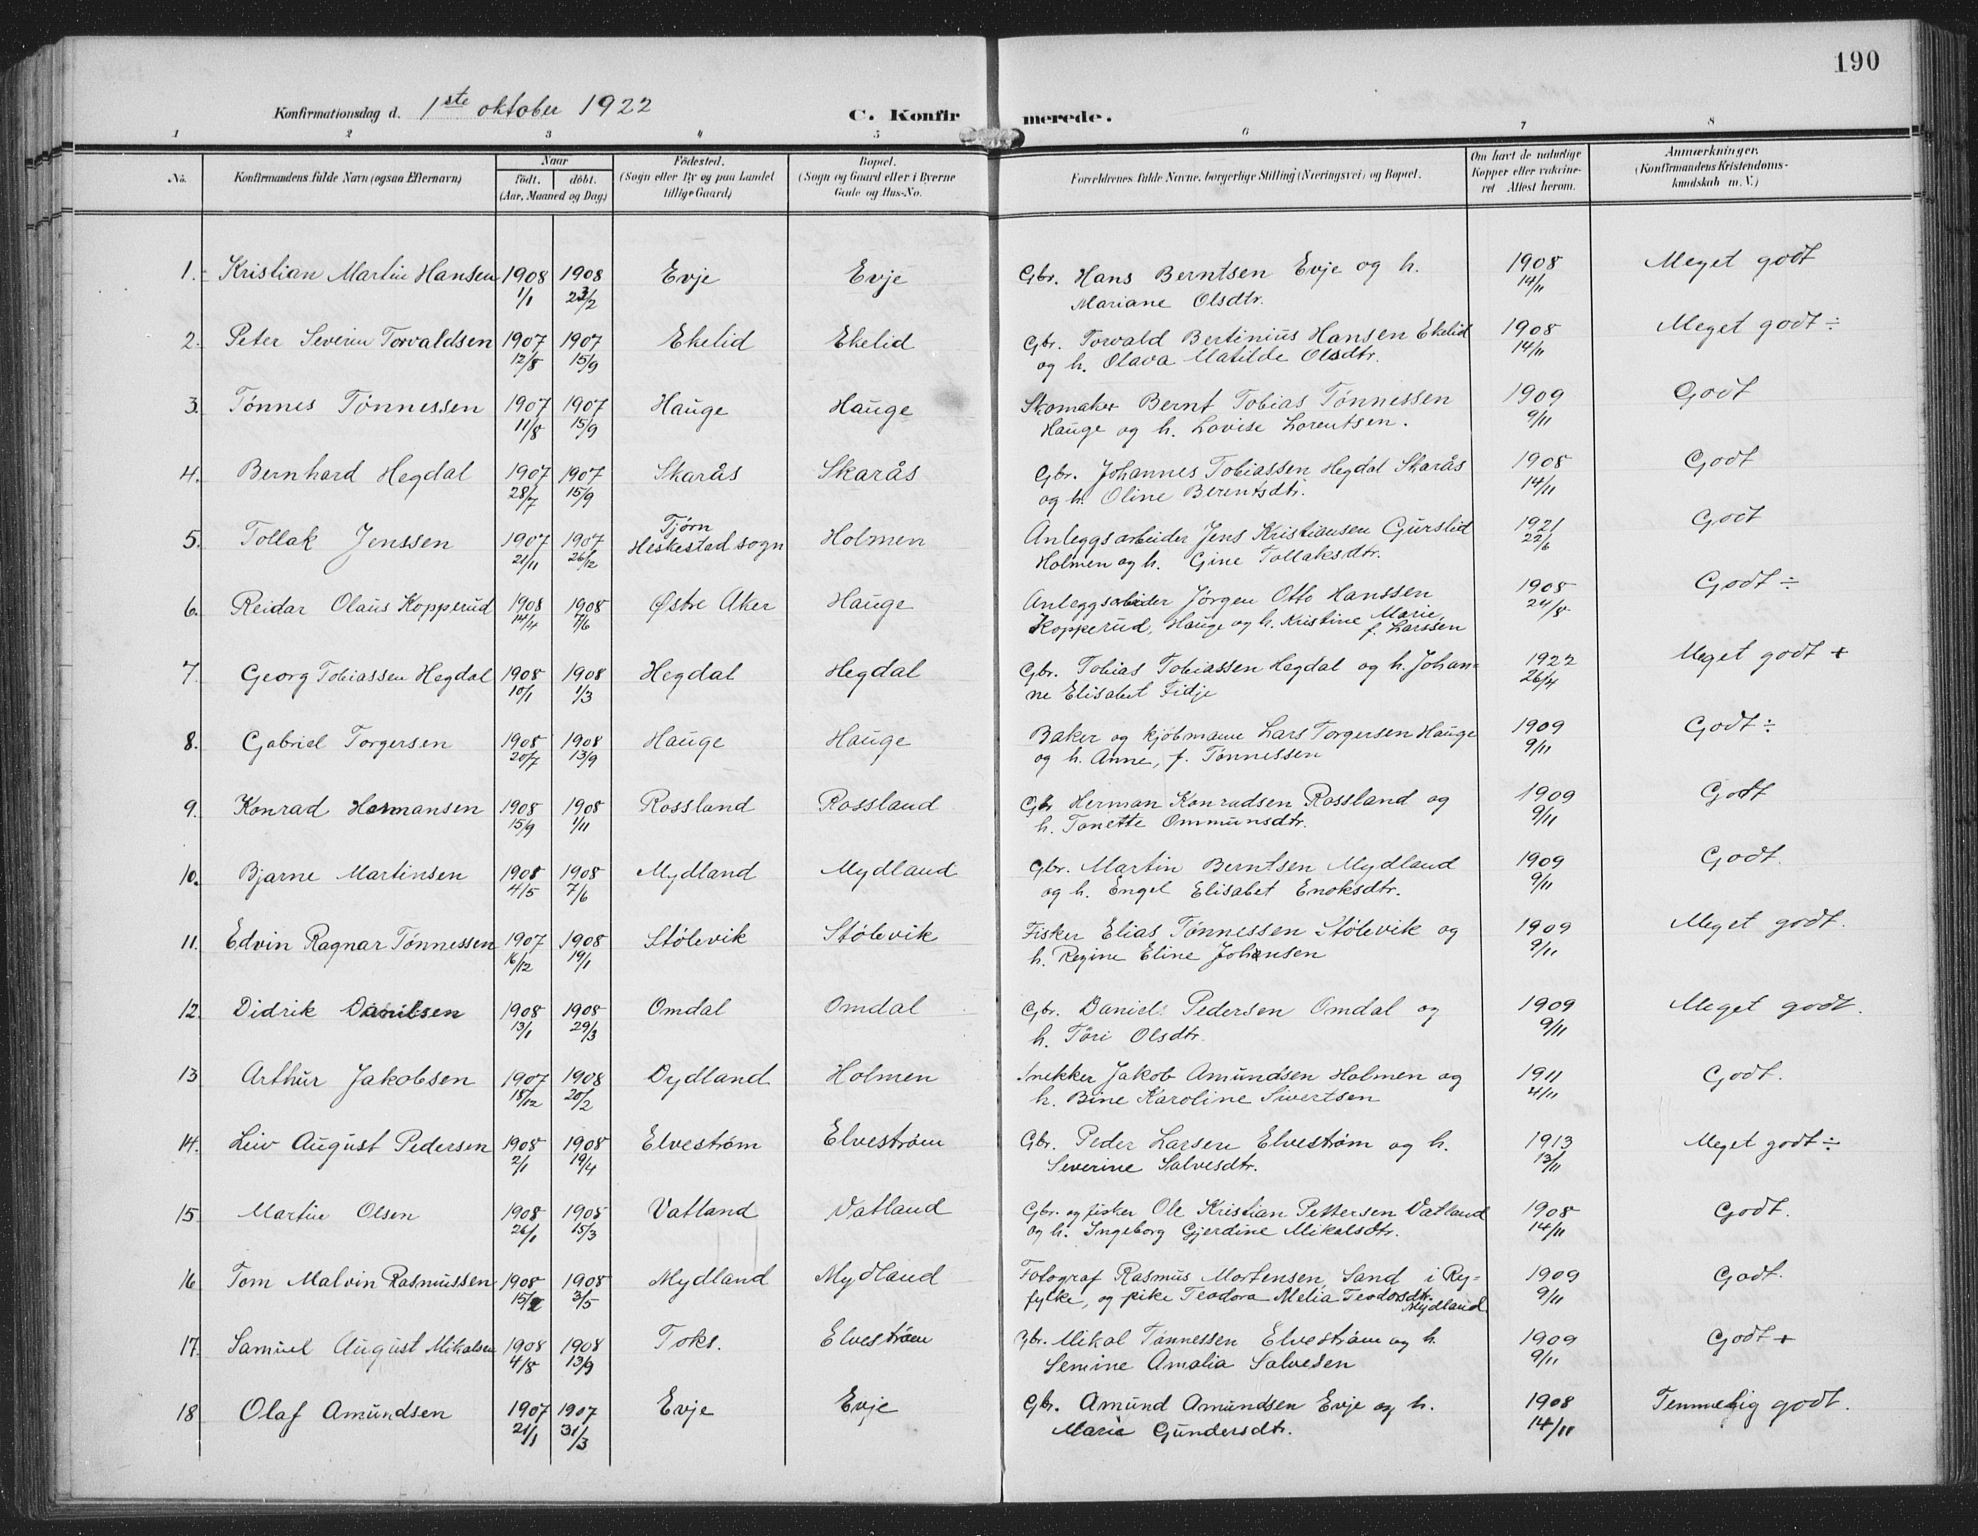 190
Konfirmationsdag d. 1ste oktober 1922 C. Konfirmerede.
1 2 3 4 5 6 7 8
No. Konfirmandens fulde Navn (ogsaa Efternavn) Naar født. døbt. (Aar, Maaned og Dag) Fødested. (Sogn eller By og paa Landet tillige Gaard) Bopæl. (Sogn og Gaard eller i Byerne Gade og Hus-No. Forældrenes fulde Navne, borgerlige Stilling (Næringsvei) og Bopæl. Om havt de naturlige Kopper eller vakcineret Attest herom. Anmærkninger. (Konfirmandens Kristendomskundskab m. V.)
1. Kristian Martin Hansen 1908 1908 Evje Evje Gbr. Hans Berntsen Evje og h. 1908 Meget godt
1/1 23/2 Mariane Olsdtr. 14/11
2. Peter Severin Torvaldsen 1907 1907 Ekelid Ekelid Gbr. Torvald Bertinius Hansen Ekelid 1908 Meget godt ÷
12/8 15/9 og h. Olava Matilde Olsdtr. 14/11
3. Tønnes Tønnessen 1907 1907 Hauge Hauge Skomaker Bernt Tobias Tønnessen 1909 Godt
11/8 15/9 Hauge og h. Lovise Lorentsen. 9/11
4. Bernhard Hegdal 1907 1907 Skarås Skarås Gbr. Johannes Tobiassen Hegdal Skarås 1908 Godt
28/7 15/9 og h. Oline Berentsdtr. 14/11
5. Tollak Jenssen 1907 1907 Tjørn Heskestad sogn Holmen Anleggsarbeider Jens Kristiansen Gurslid 1921 Godt
21/11 26/12 Holmen og h. Gine Tollaksdtr. 22/6
6. Reidar Olaus Kopperud 1908 1908 Østre Aker Hauge Anleggsarbeider Jørgen Otto Hanssen 1908 Godt ÷
14/4 7/6 Kopperud, Hauge og h. Kristine Marie, f. Larssen 24/8
7. Georg Tobiassen Hegdal 1908 1908 Hegdal Hegdal Gbr. Tobias Tobiassen Hegdal og h. Johan- 1922 Meget godt +
10/1 1/3 ne Elisabet Fidje 26/4
8. Gabriel Torgersen 1908 1908 Hauge Hauge Baker og kjøbmann Lars Torgersen Hauge 1909 Godt ÷
20/7 13/9 og h. Anne, f. Tønnessen 9/11
9. Konrad Hermansen 1908 1908 Rossland Rossland Gbr Herman Konradsen Rossland og 1909 Godt
15/9 1/11 h. Tonette Ommunsdtr. 9/11
10. Bjarne Martinsen 1908 1908 Mydland Mydland Gbr. Martin Berntsen Mydland 1909 Godt.
4/5 7/6 og h. Engel Elisabet Enoksdtr. 9/11
11. Edvin Ragnar Tønnessen 1907 1908 Stølevik Stølevik Fisker Elias Tønnessen Stølevik og 1909 Meget godt.
16/12 19/1 h. Regine Eline Johansen 9/11
12. Didrik Danielsen 1908 1908 Omdal Omdal Gbr. Daniel Pedersen Omdal og 1909 Meget godt.
13/1 29/3 h. Tori Olsdtr. 9/11
13 Arthur Jakobsen 1907 1908 Dydland Holmen Snekker Jakob Amundsen Holmen og 1911 Godt.
18/12 20/2 h. Bine Karoline Sivertsen 4/11
14. Leiv August Pedersen 1908 1908 Elvestrøm Elvestrøm Gbr. Peder Larsen Elvestrøm og h. 1913 Meget godt ÷
2/1 19/4 Severine Salvesdtr. 13/11
15 Martin Olsen 1908 1908 Vatland Vatland Gbr. og fisker Ole Kristian Pettersen Vatland 1908 Godt.
26/1 15/3 og h. Ingeborg Gjerdine Mikalsdtr. 14/11
16 Tom Malvin Rasmussen 1908 1908 Mydland Mydland Fotograf Rasmus Mortensen, Sand i Ry- 1909 Godt.
3/5 fylke, og pike Teodora Melia Teodorsdtr. Mydland 9/11
17. Samuel August Mikalsen 1908 1908 Toks. Elvestrøm Gbr. Mikal Tønnessen Elvestrøm og h. 1909 Godt +
4/8 13/9 Semine Amalia Salvesen 9/11
18 Olaf Amundsen 1907 1907 Evje Evje Gbr. Amund Amundsen Evje og h. 1908 Temmelig godt.
21/1 31/3 Maria Gundersdtr. 14/11